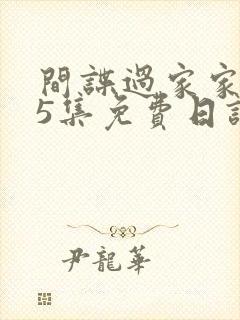 間諜過家家
5集免費日語
尹龍華